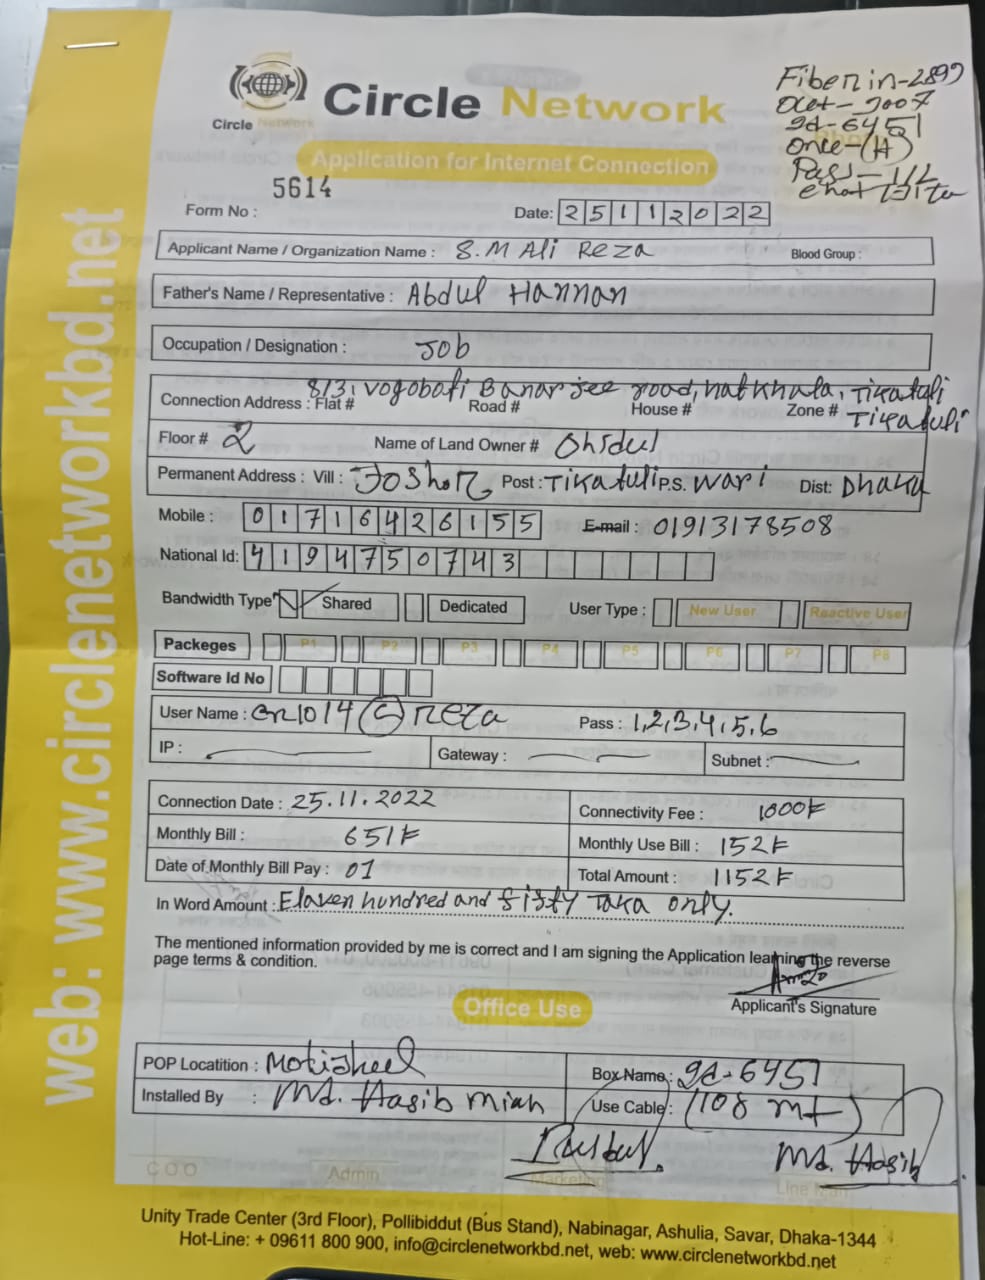 Circle Network
Circle Network
Fiber in-2899
Out-2007
id-6451
Onu-(H)
Pass-
Application for Internet Connection
5614
Form No :
Date: 25112022
Applicant Name / Organization Name : S.M Ali Reza Blood Group :
Father's Name / Representative : Abdul Hannan
Occupation / Designation : Job
8/3, Vogoboti Banarjee road, hatkhola, Tikatuli
Connection Address : Flat # Road # House # Zone # Tikatuli
Floor # 2 Name of Land Owner # Ohidul
Permanent Address : Vill : Joshor Post : Tikatuli P.S. Wari Dist: Dhaka
Mobile : 01716426155 E-mail : 01913178508
National Id: 4194750743
Bandwidth Type Shared Dedicated User Type : New User Reactive User
Packeges P1 P2 P3 P4 P5 P6 P7 P8
Software Id No
User Name : Reza Pass : 1,2,3,4,5,6
IP : Gateway : Subnet :
Connection Date : 25.11.2022 Connectivity Fee : 1000৳
Monthly Bill : 651৳ Monthly Use Bill : 152৳
Date of Monthly Bill Pay : 01 Total Amount : 1152৳
In Word Amount : Elaven hundred and fifty Taka only.
The mentioned information provided by me is correct and I am signing the Application learning the reverse
page terms & condition.
Applicant's Signature
Office Use
POP Locatition : Motijheel Box Name : id-6451
Installed By : Md. Hasib miah Use Cable : (108 mt)
Md. Hasib
COO Admin Marketing Line Man
Unity Trade Center (3rd Floor), Pollibiddut (Bus Stand), Nabinagar, Ashulia, Savar, Dhaka-1344
Hot-Line: + 09611 800 900, info@circlenetworkbd.net, web: www.circlenetworkbd.net
web: www.circlenetworkbd.net